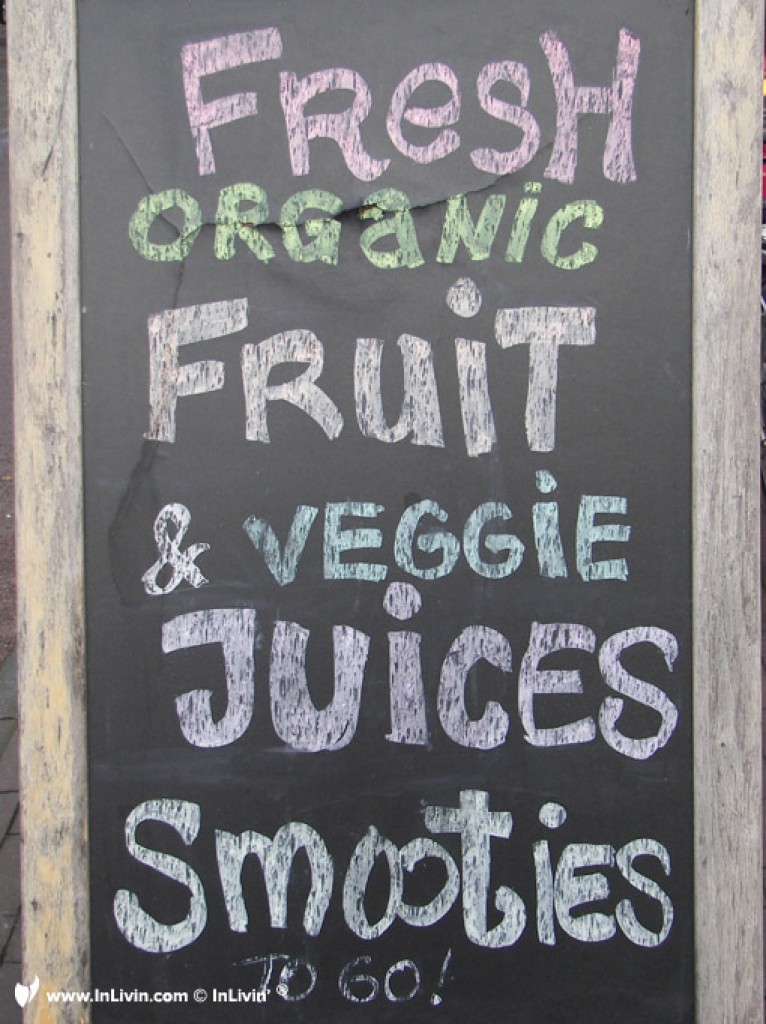 FResH
ORGaNiC
FRuiT
& VEGGiE
JuiCES
SmooTiES
TO GO!
www.InLivin.com © InLivin' ®